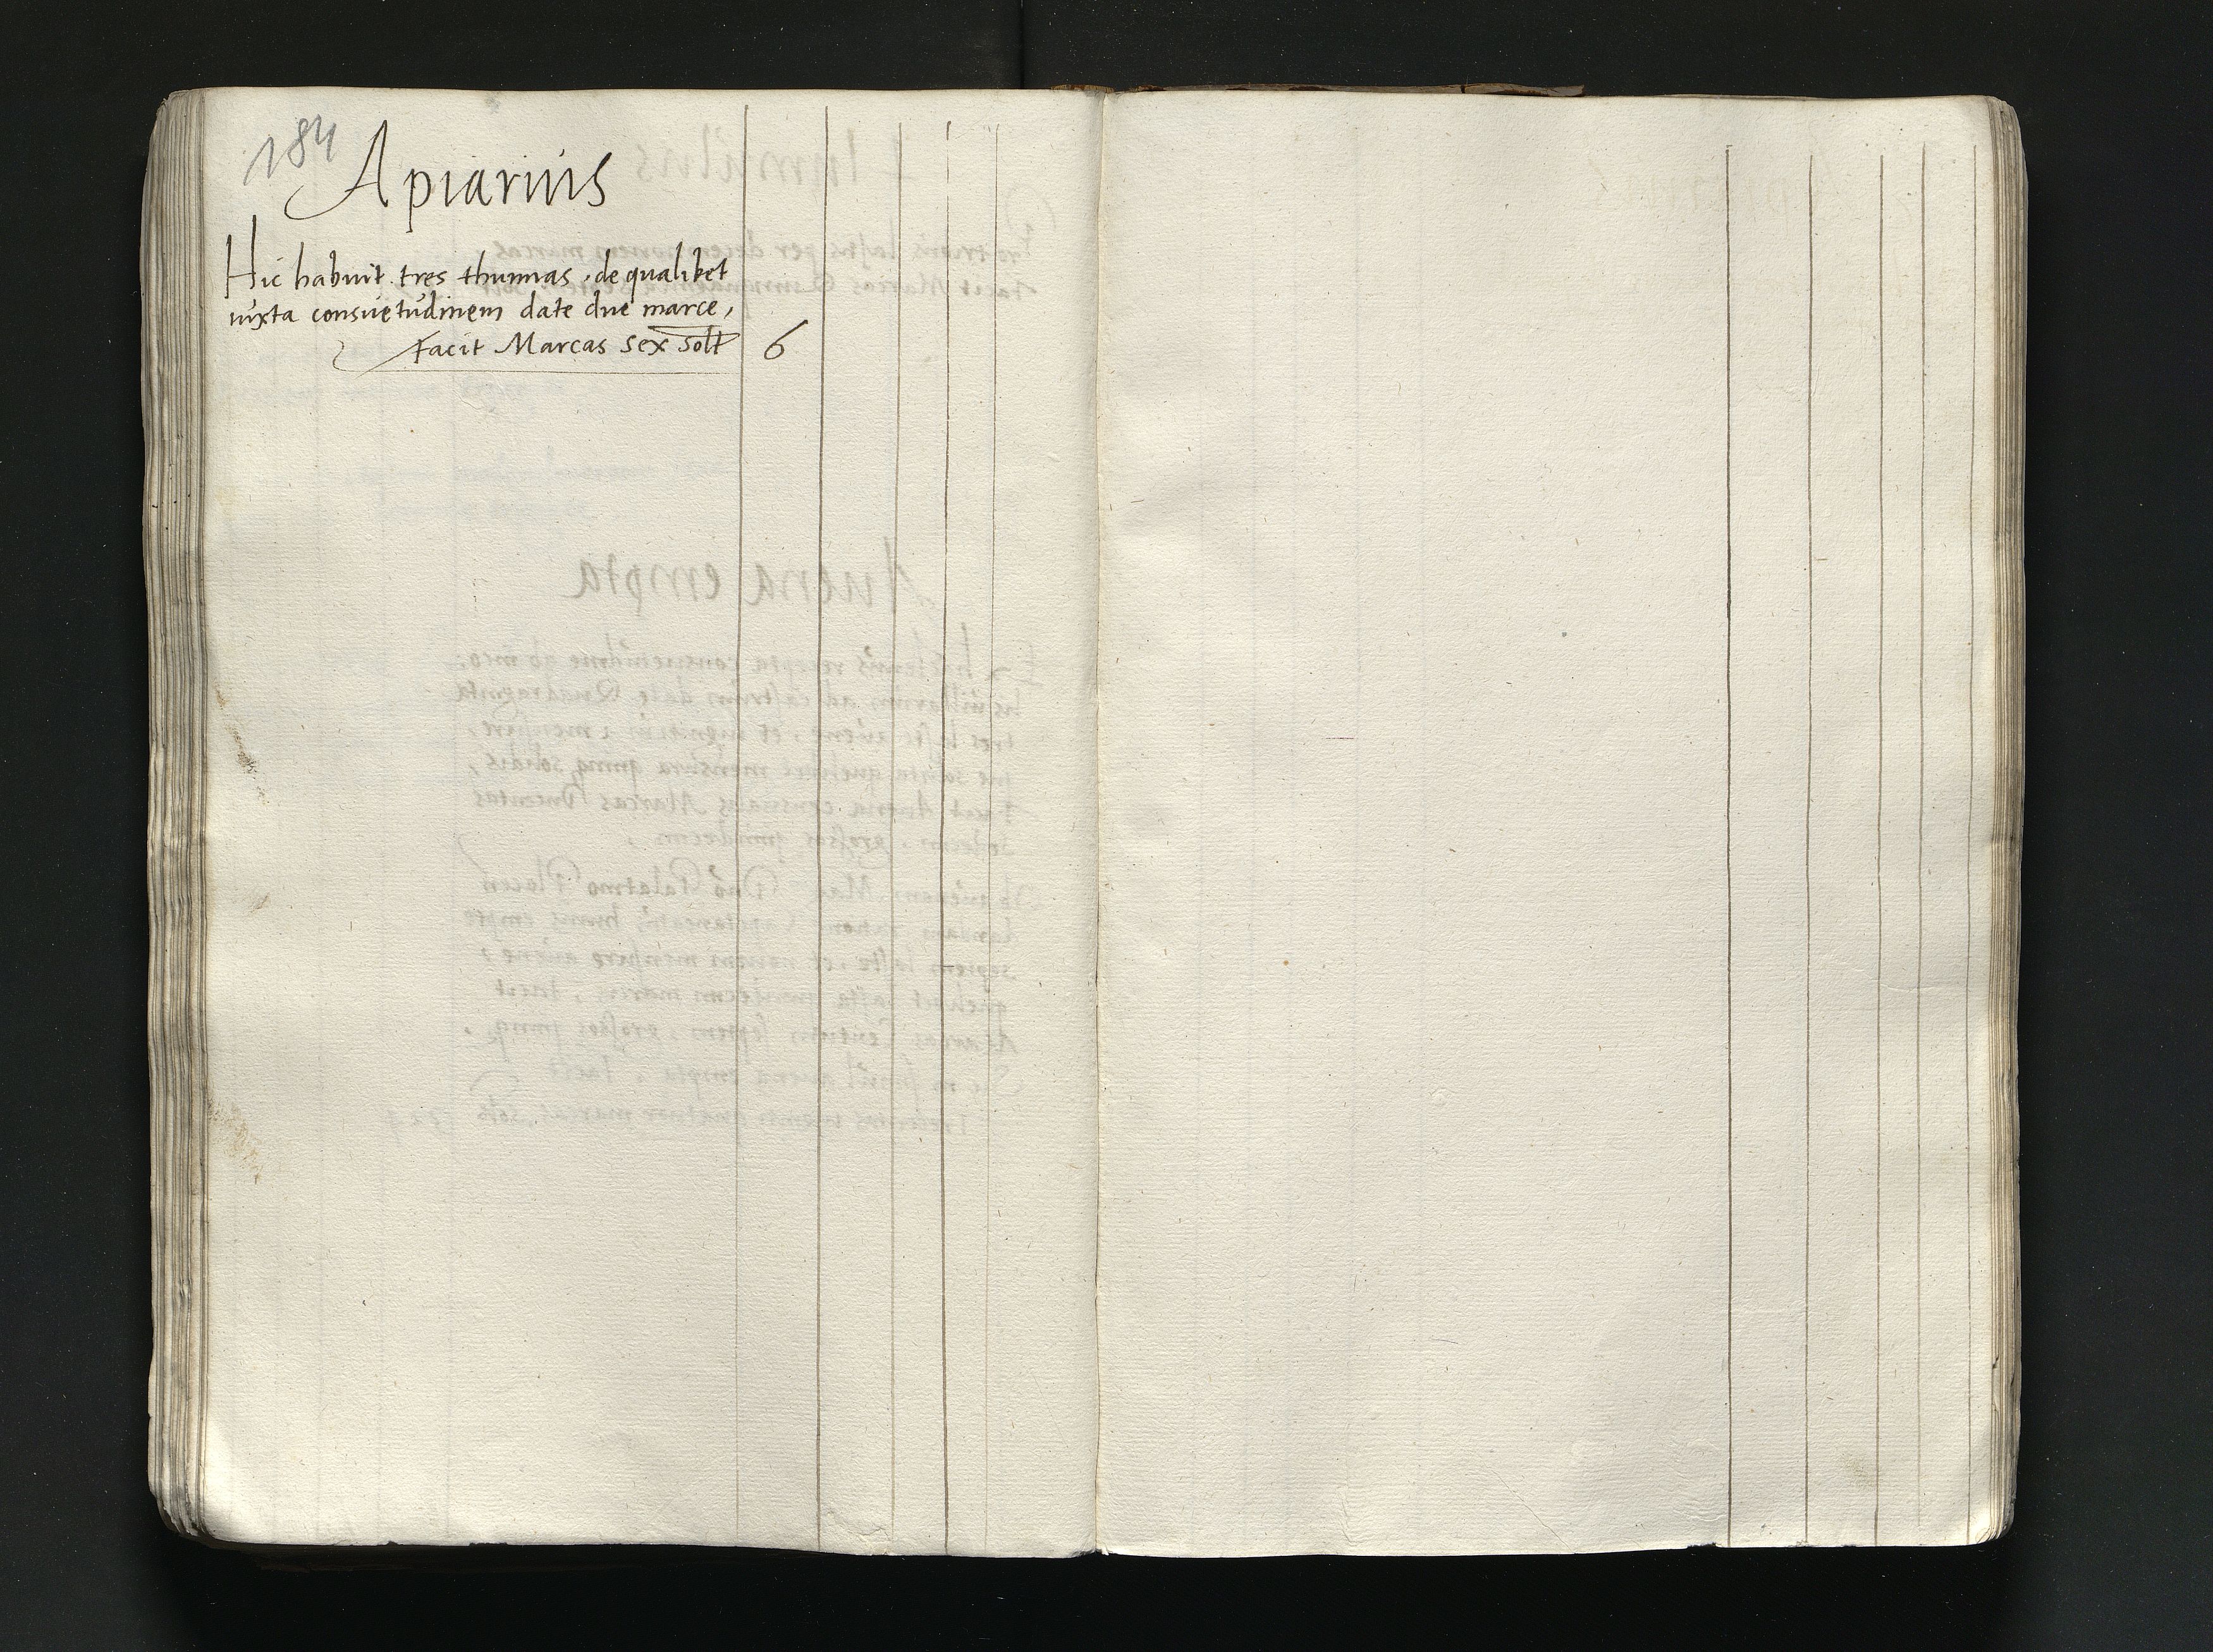 184
Apiarius
Hic habuit tres thunnas, de qualibet
iuxta consuetudinem date due marce,
Facit Marcas sex solt 6